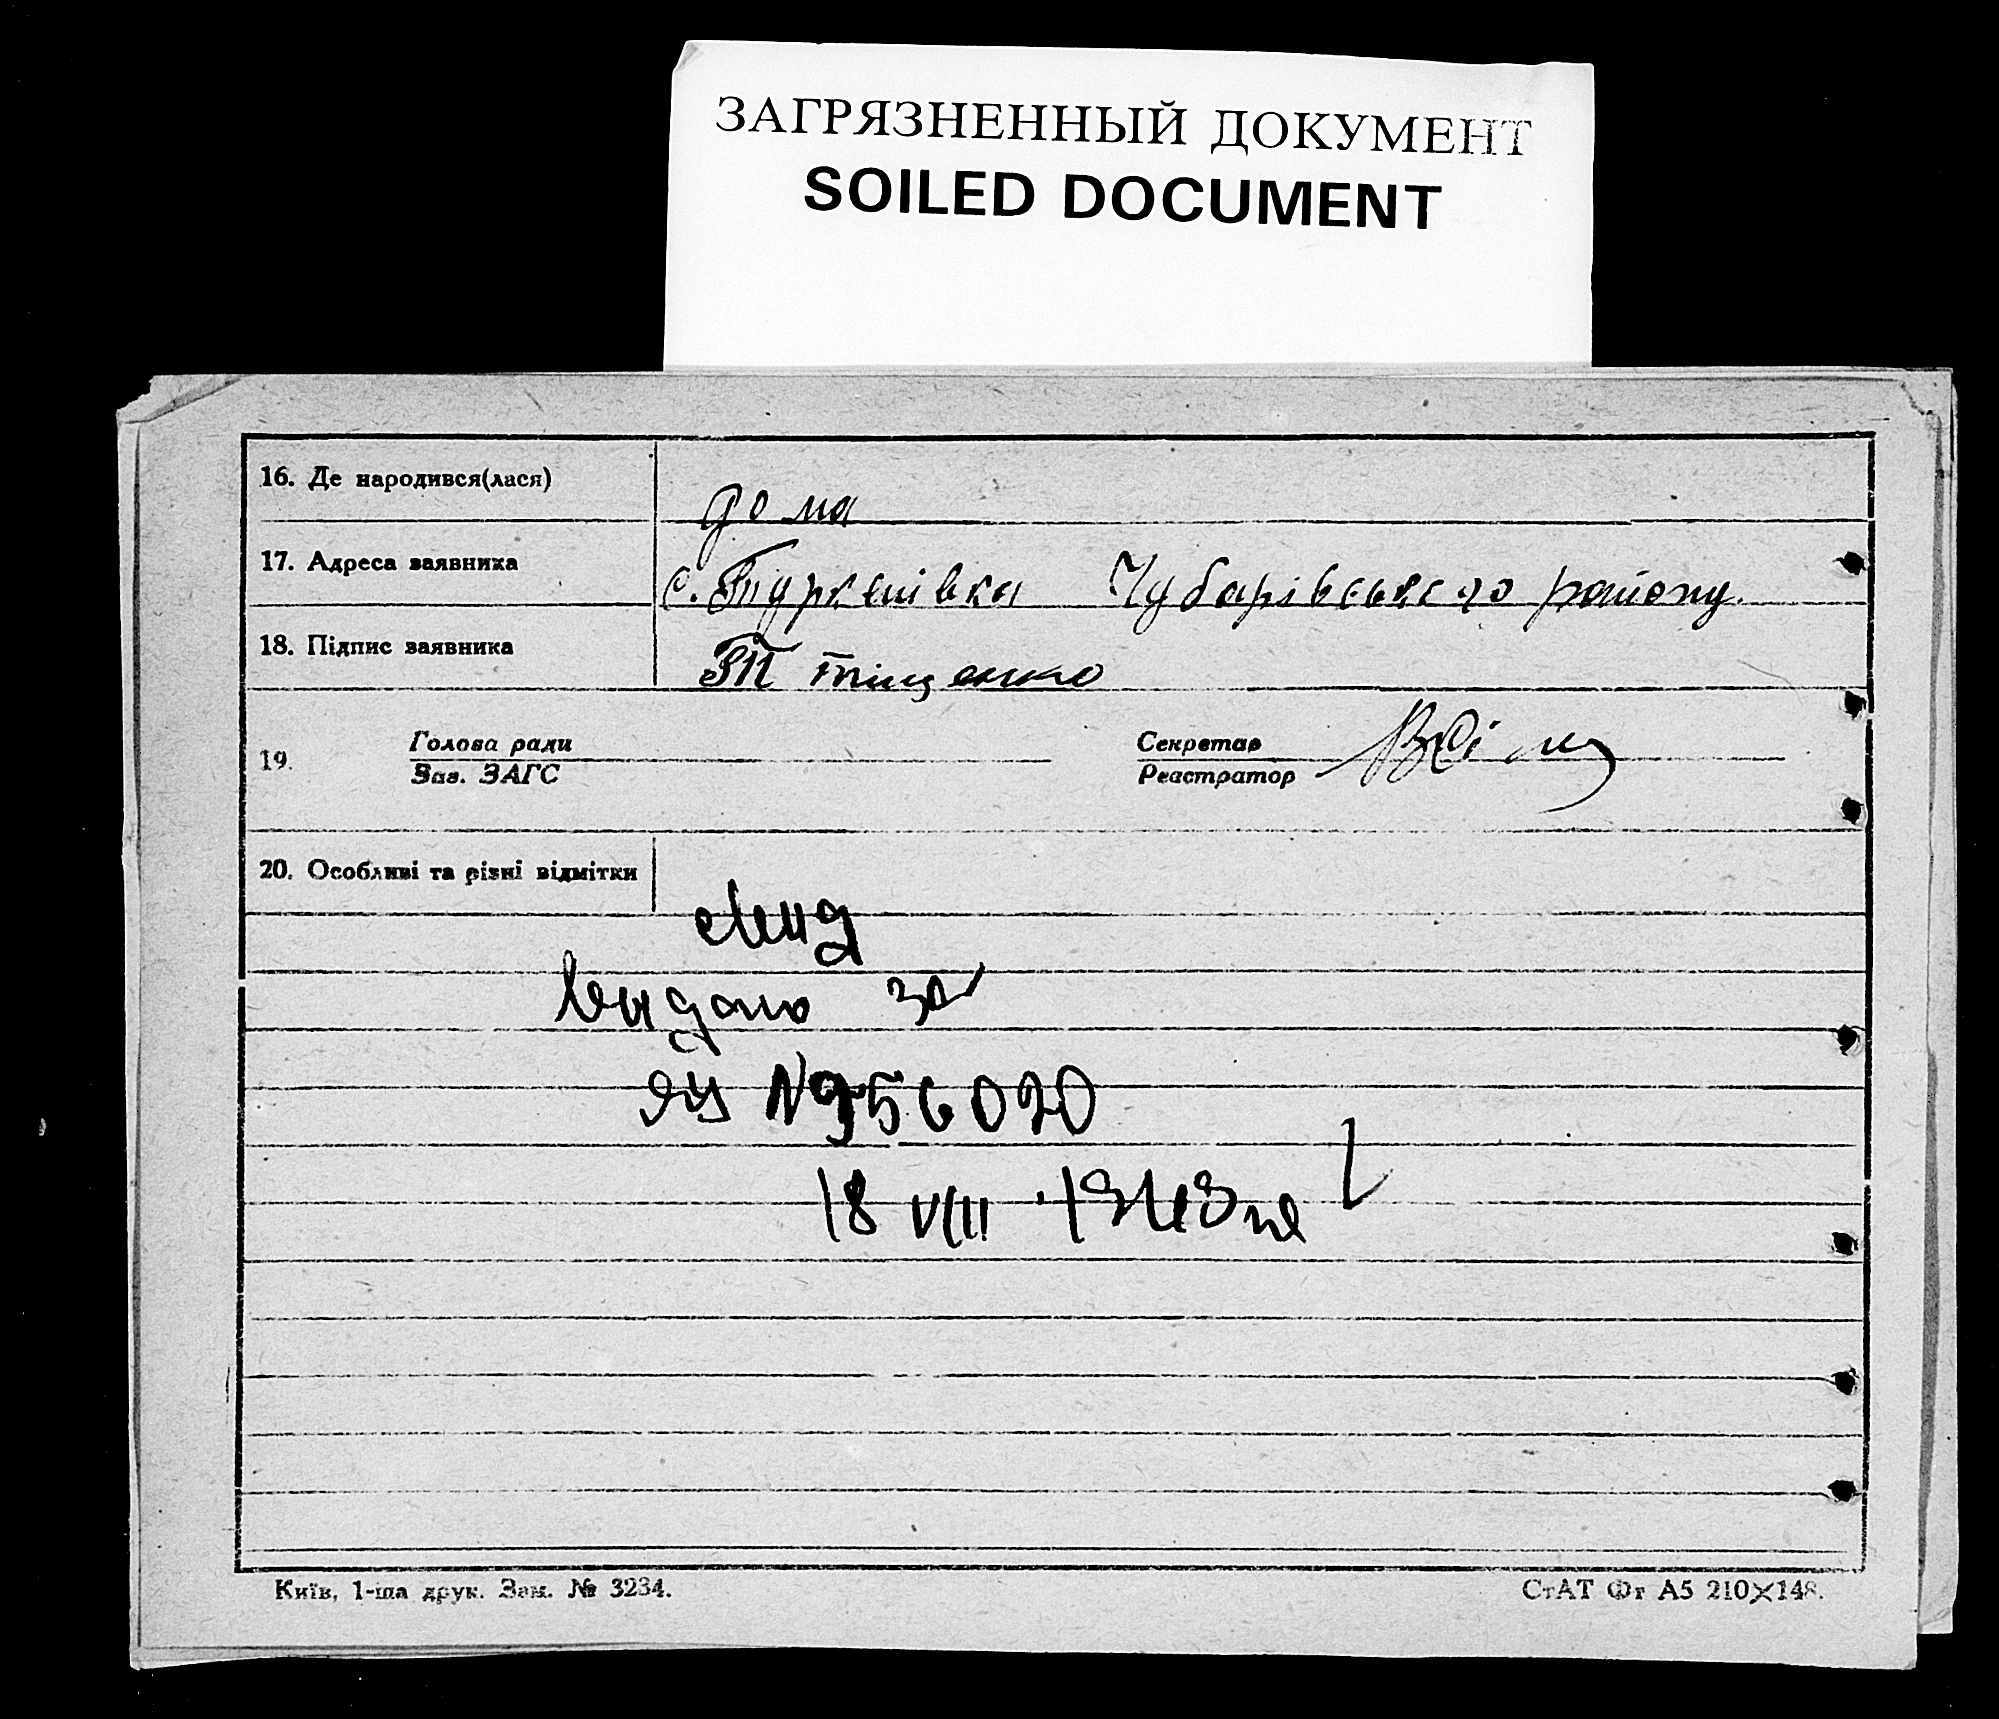 ЗАГРЯЗНЕННЫЙ ДОКУМЕНТ
SOILED DOCUMENT
16. Де народився(лася) дома
17. Адреса заявника с. Туркенівка Чубарівського району.
18. Підпис заявника Тіщенко
19. Голова ради Секретар
Зав. ЗАГС Реєстратор
20. Особливі та різні відмітки
видано за
ЯЦ N 956020
18 VIII 1943
Київ, 1-ша друк. Зам. № 3234. СтАТ Фт А5 210×148.